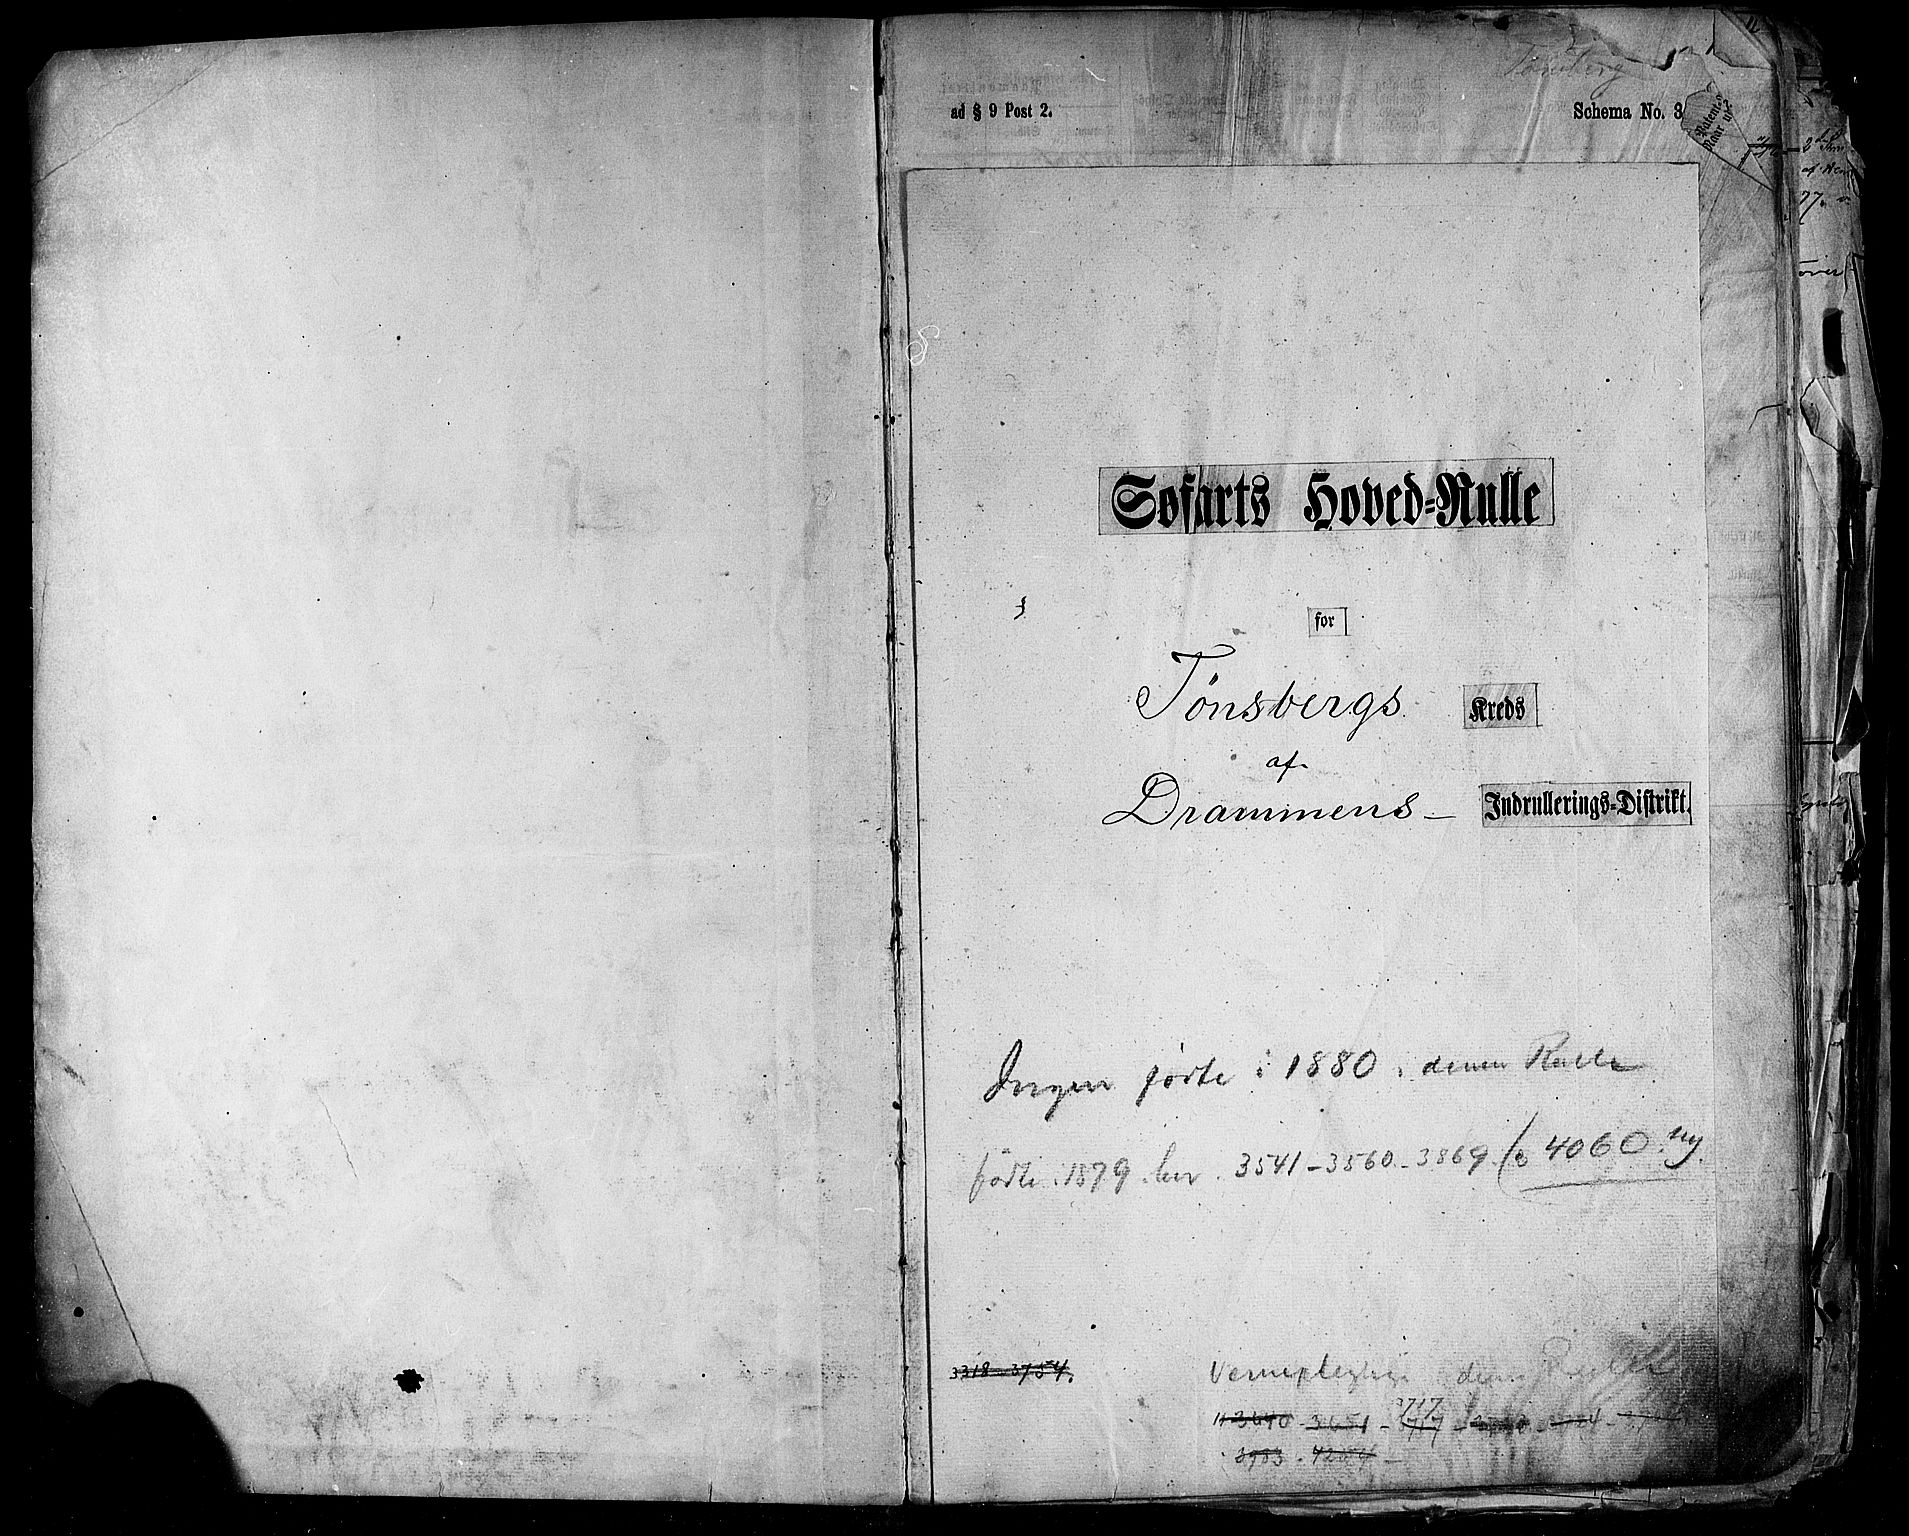 Tönsberg
ad § 9 Post 2.
Schema No. 3
Patent-
Naar u
2den
77.
over
Søfarts Hoved-Rulle
for
Tönsbergs Kreds
af
Drammens — Indrullerings-Distrikt.
Ingen födte i 1880 i denne Rulle
födte i 1879 her. 3541 - 3560 - 3869. 4060 ny.
3318 - 3754.
Vernepligtige i denne Rulle
3717
3640 - 3651 - 3717
3983 - 4254 -